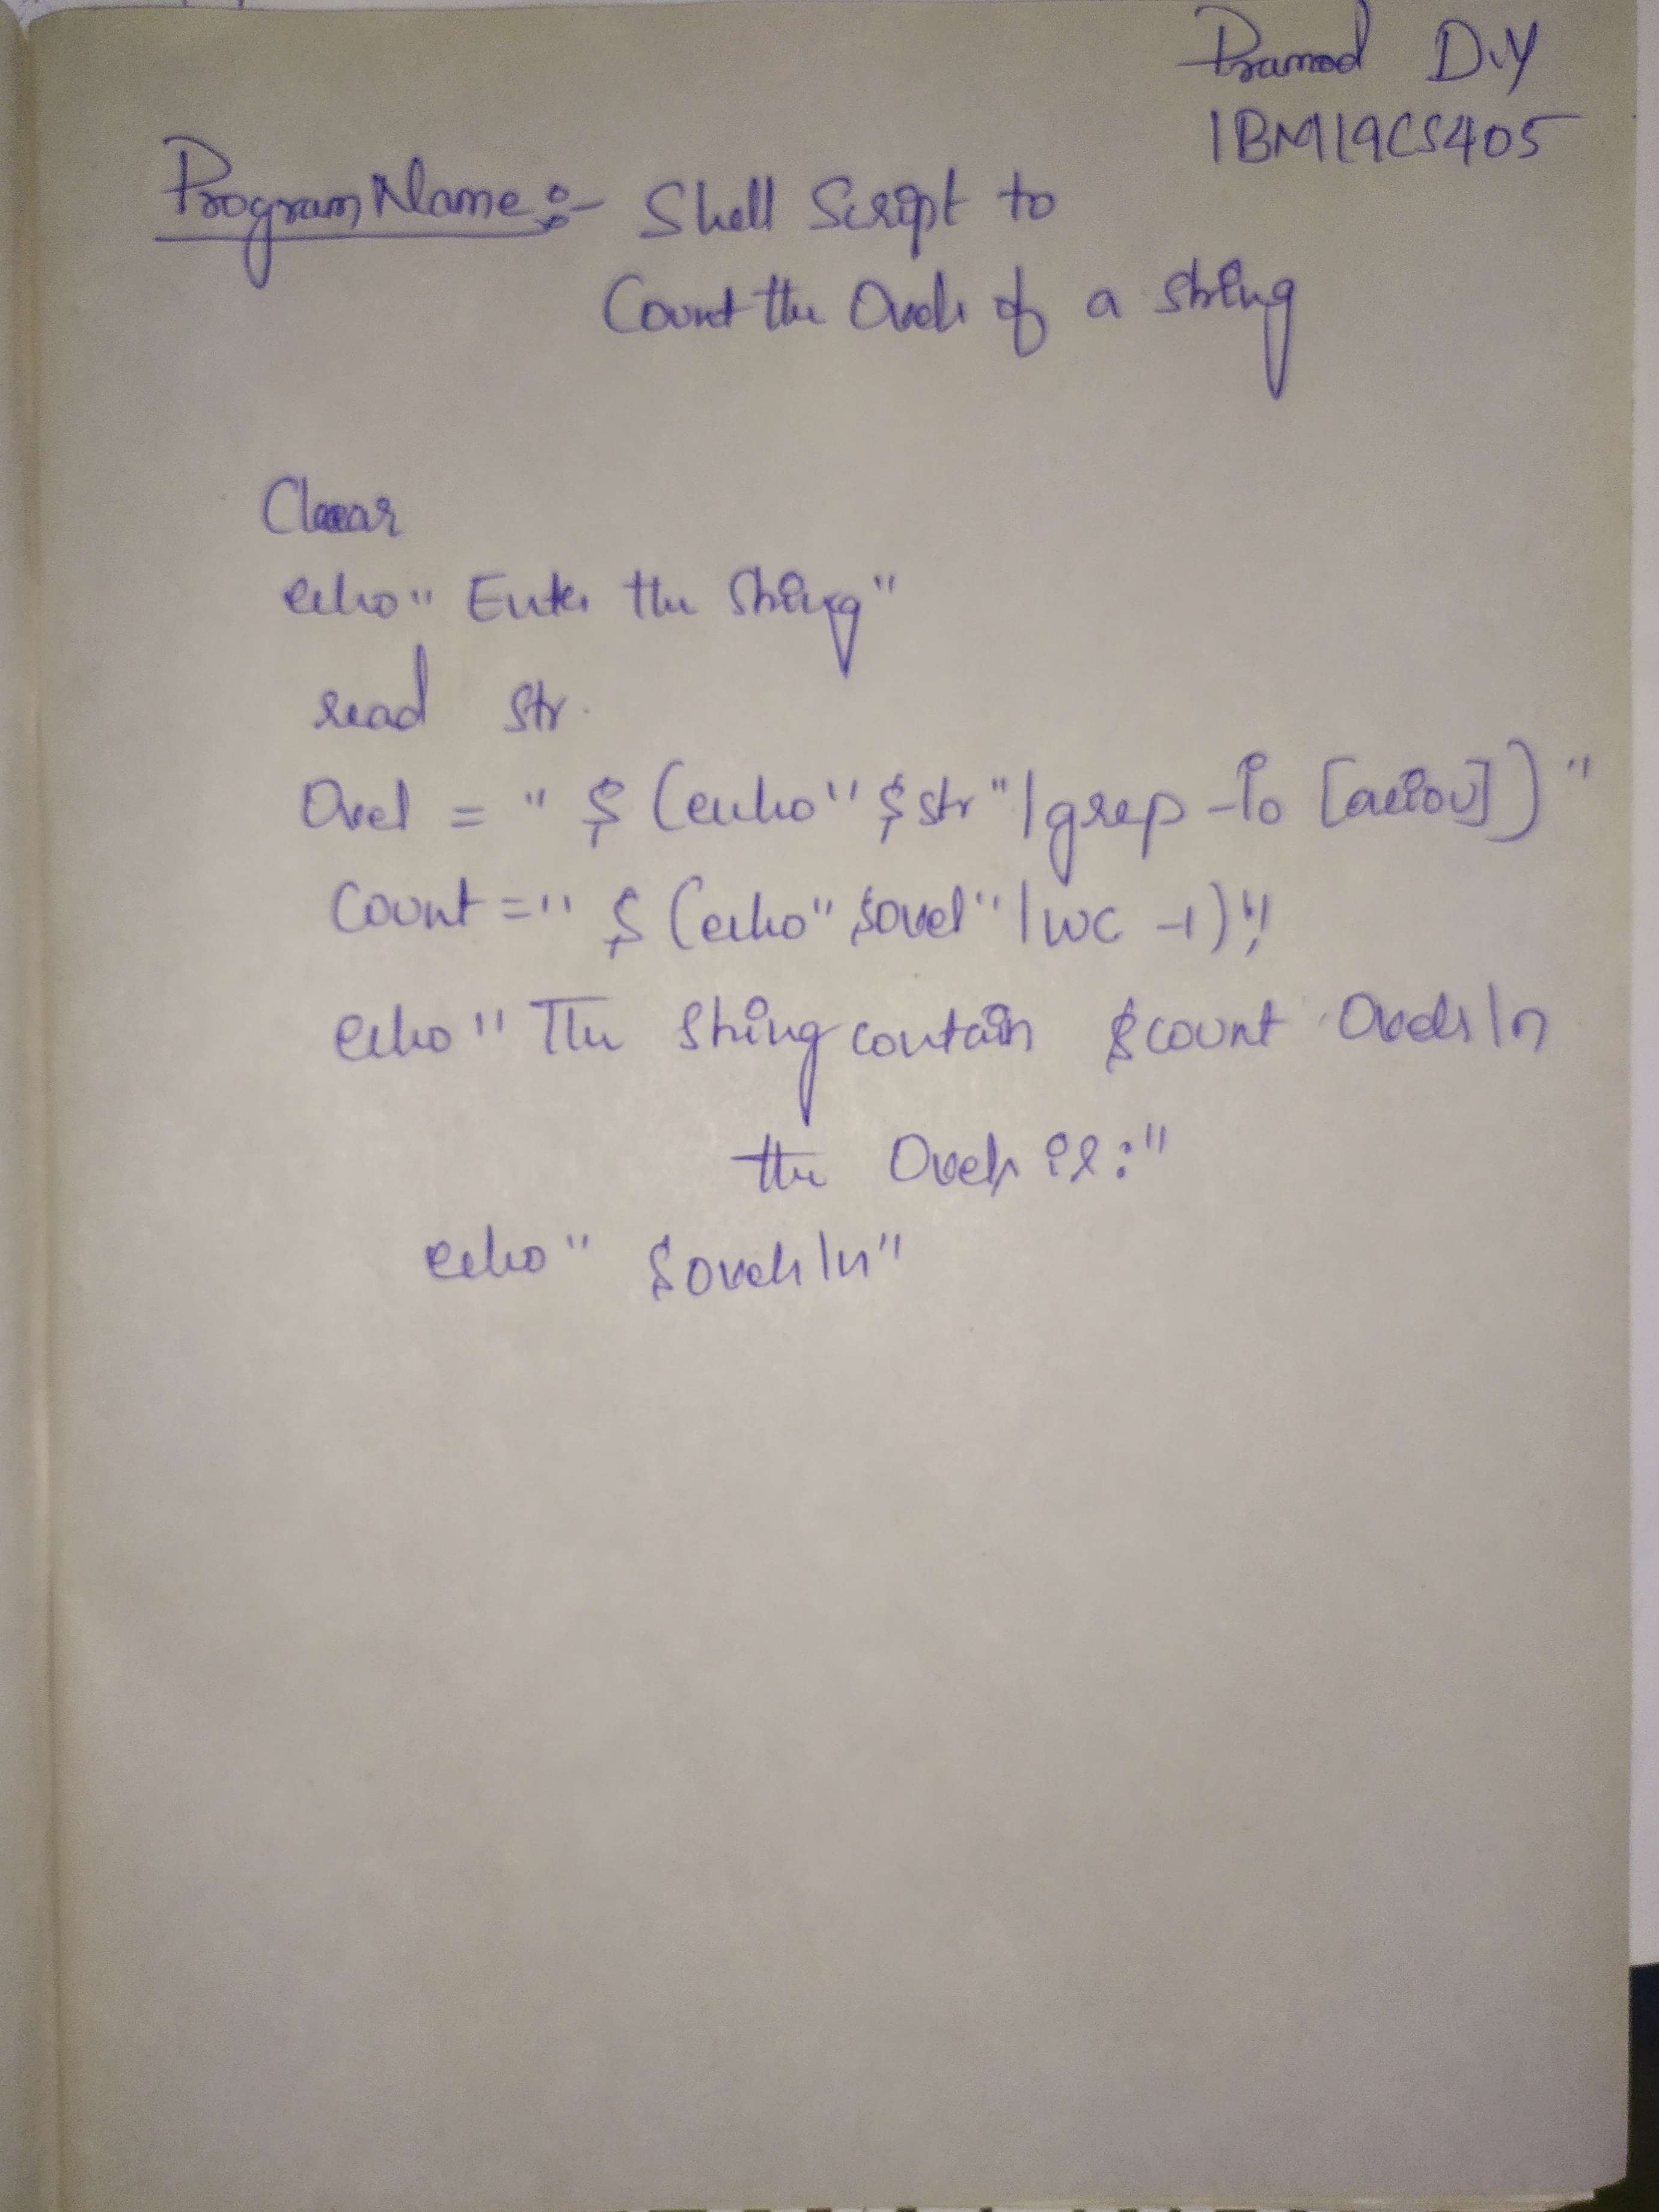 Pramod D.Y
1BM19CS405
Program Name :- Shell Script to
Count the Ovels of a string
Clear
echo " Enter the string"
read str
Ovel = " $ (echo " $str " | grep -io [aeiou]) "
Count = " $ (echo " $ovel " | wc -l) "
echo " The string contain $count Ovels \n
the Ovels is : "
echo " $ovels \n "